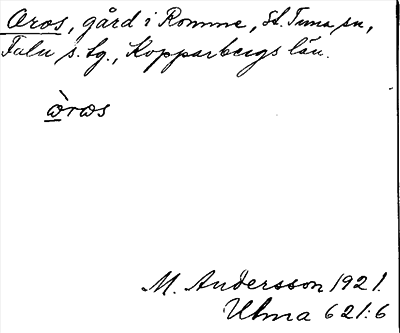 Oros, gård i Romme, St. Tuna sn,
Falu s. tg., Kopparbergs län.
ὼrωs
M. Andersson 1921.
Ulma 621:6